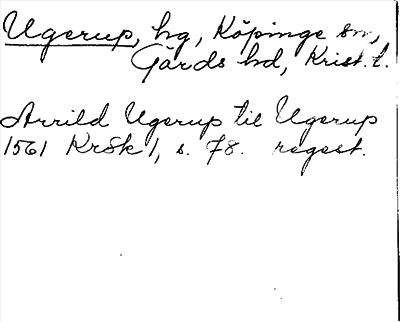 Ugerup, hg, Köpinge sn,
Gärds hd, Krist. l.
Arrild Ugerup til Ugerup
1561 KrSk 1, s. 78. regest.